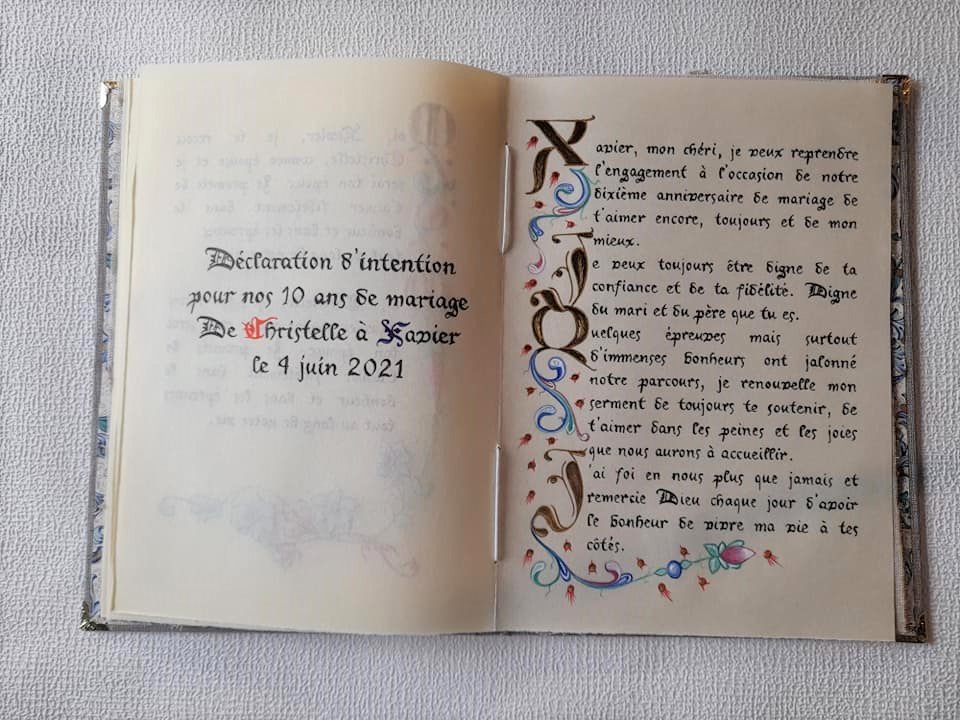 Déclaration d'intention
pour nos 10 ans de mariage
De Christelle à Xavier
le 4 juin 2021
Xavier, mon chéri, je veux reprendre
l'engagement à l'occasion de notre
dixième anniversaire de mariage de
t'aimer encore, toujours et de mon
mieux.
Je veux toujours être digne de ta
confiance et de ta fidélité. Digne
du mari et du père que tu es.
Quelques épreuves mais surtout
d'immenses bonheurs ont jalonné
notre parcours, je renouvelle mon
serment de toujours te soutenir, de
t'aimer dans les peines et les joies
que nous aurons à accueillir.
J'ai foi en nous plus que jamais et
remercie Dieu chaque jour d'avoir
le bonheur de vivre ma vie à tes
côtés.